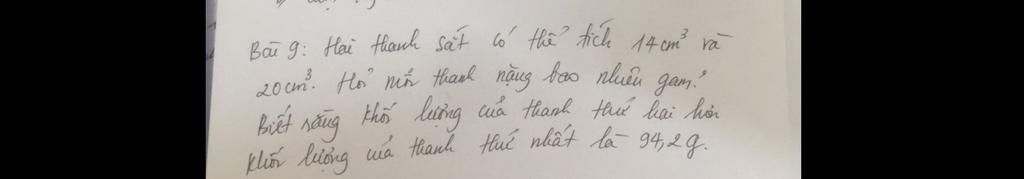 Bài 9: Hai thanh sắt có thể tích 14cm³ và
20cm³. Hỏi mỗi thanh nặng bao nhiêu gam?
Biết rằng khối lượng của thanh thứ hai hơn
khối lượng của thanh thứ nhất là 94,2g.